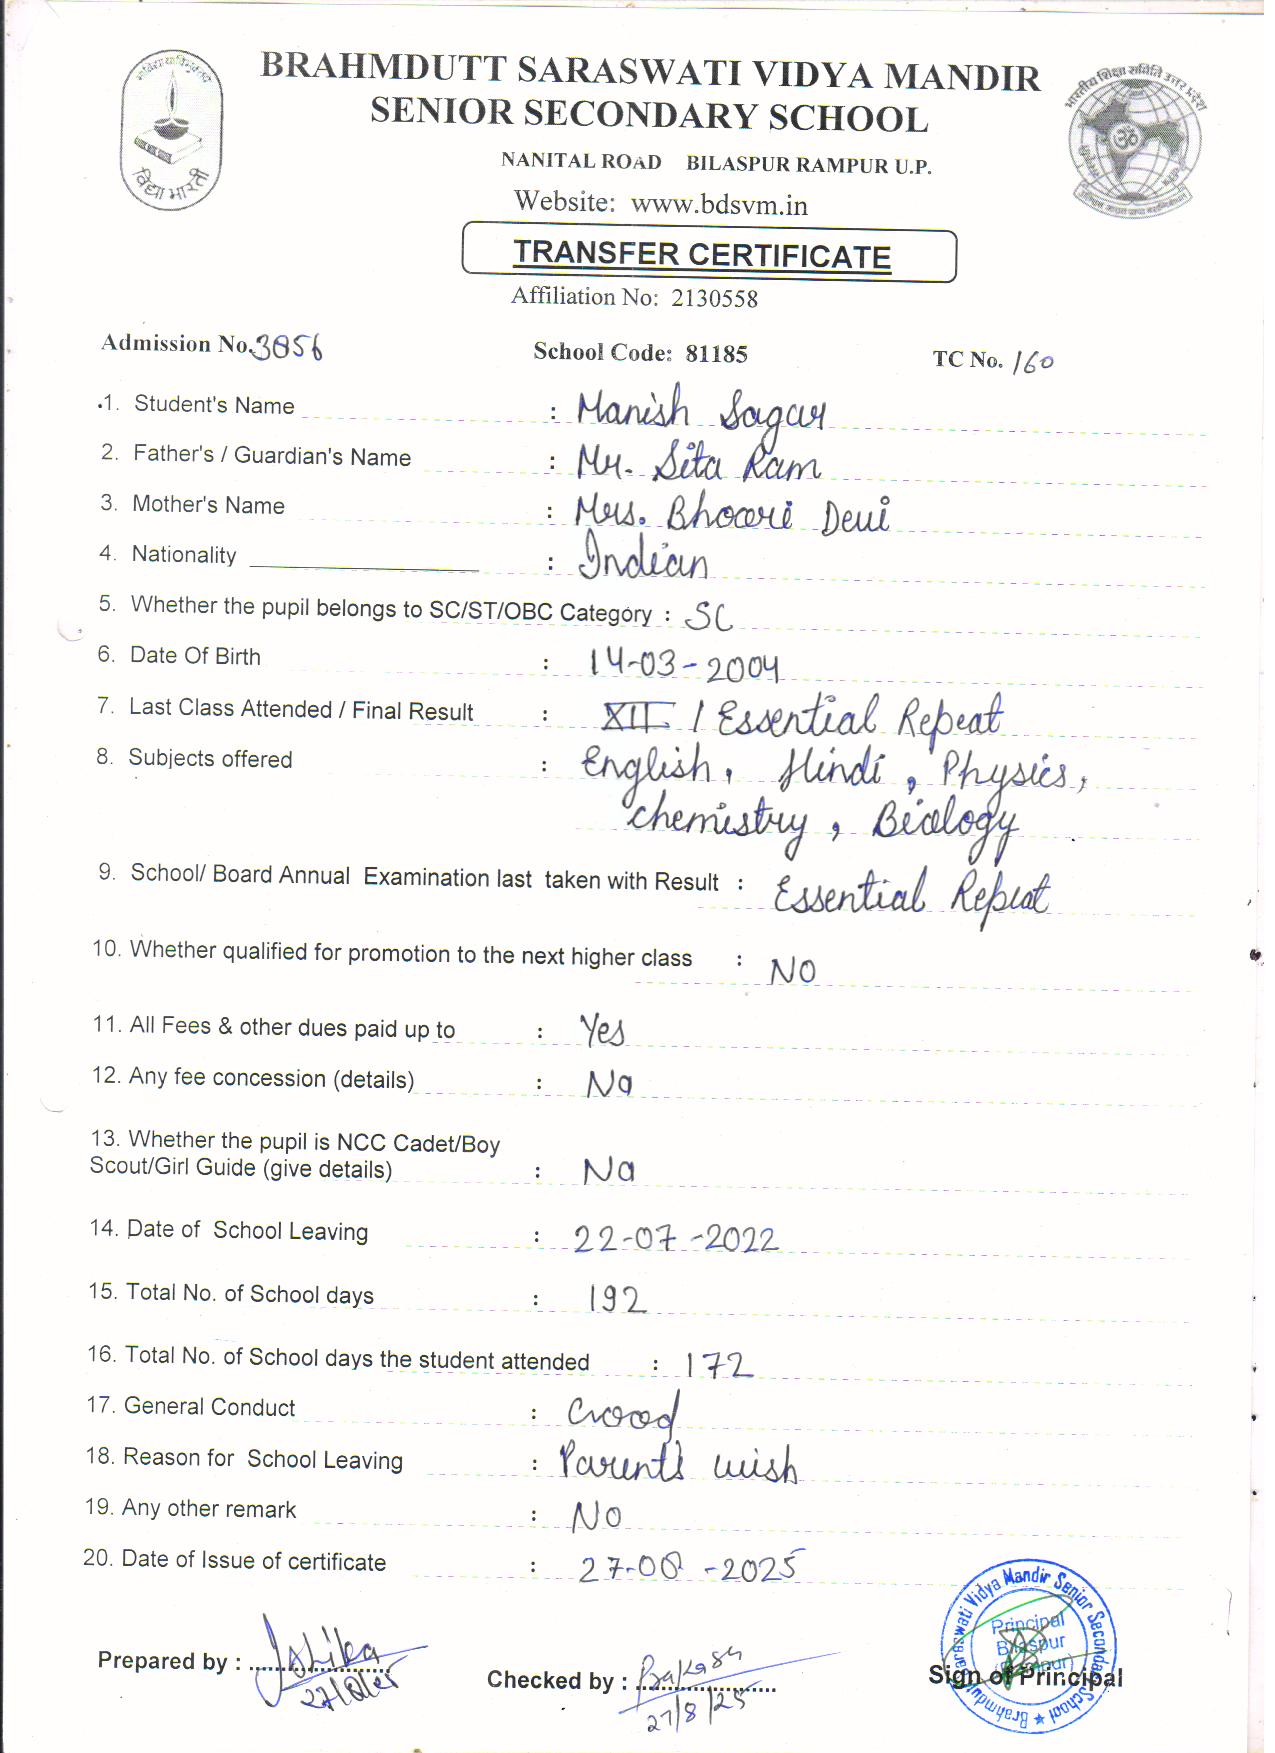 BRAHMDUTT SARASWATI VIDYA MANDIR
SENIOR SECONDARY SCHOOL
NANITAL ROAD BILASPUR RAMPUR U.P.
Website: www.bdsvm.in
विद्या भारती
भारतीय शिक्षा समिति उत्तर प्रदेश
TRANSFER CERTIFICATE
Affiliation No: 2130558
Admission No. 3856 School Code: 81185 TC No. 160
1. Student's Name : Manish Sagar
2. Father's / Guardian's Name : Mr. Sita Ram
3. Mother's Name : Mrs. Devi
4. Nationality : Indian
5. Whether the pupil belongs to SC/ST/OBC Category : SC
6. Date Of Birth : 14-03-2004
7. Last Class Attended / Final Result : XII / Essential Repeat
8. Subjects offered : English, Hindi, Physics,
chemistry, Biology
9. School/ Board Annual Examination last taken with Result : Essential Repeat
10. Whether qualified for promotion to the next higher class : NO
11. All Fees & other dues paid up to : Yes
12. Any fee concession (details) : No
13. Whether the pupil is NCC Cadet/Boy
Scout/Girl Guide (give details) : No
14. Date of School Leaving : 22-07-2022
15. Total No. of School days : 192
16. Total No. of School days the student attended : 172
17. General Conduct : Good
18. Reason for School Leaving : Parents wish
19. Any other remark : No
20. Date of Issue of certificate : 27-08-2025
Prepared by :
Checked by : Prakash
27/8/25
Principal
Bilaspur
Sign of Principal